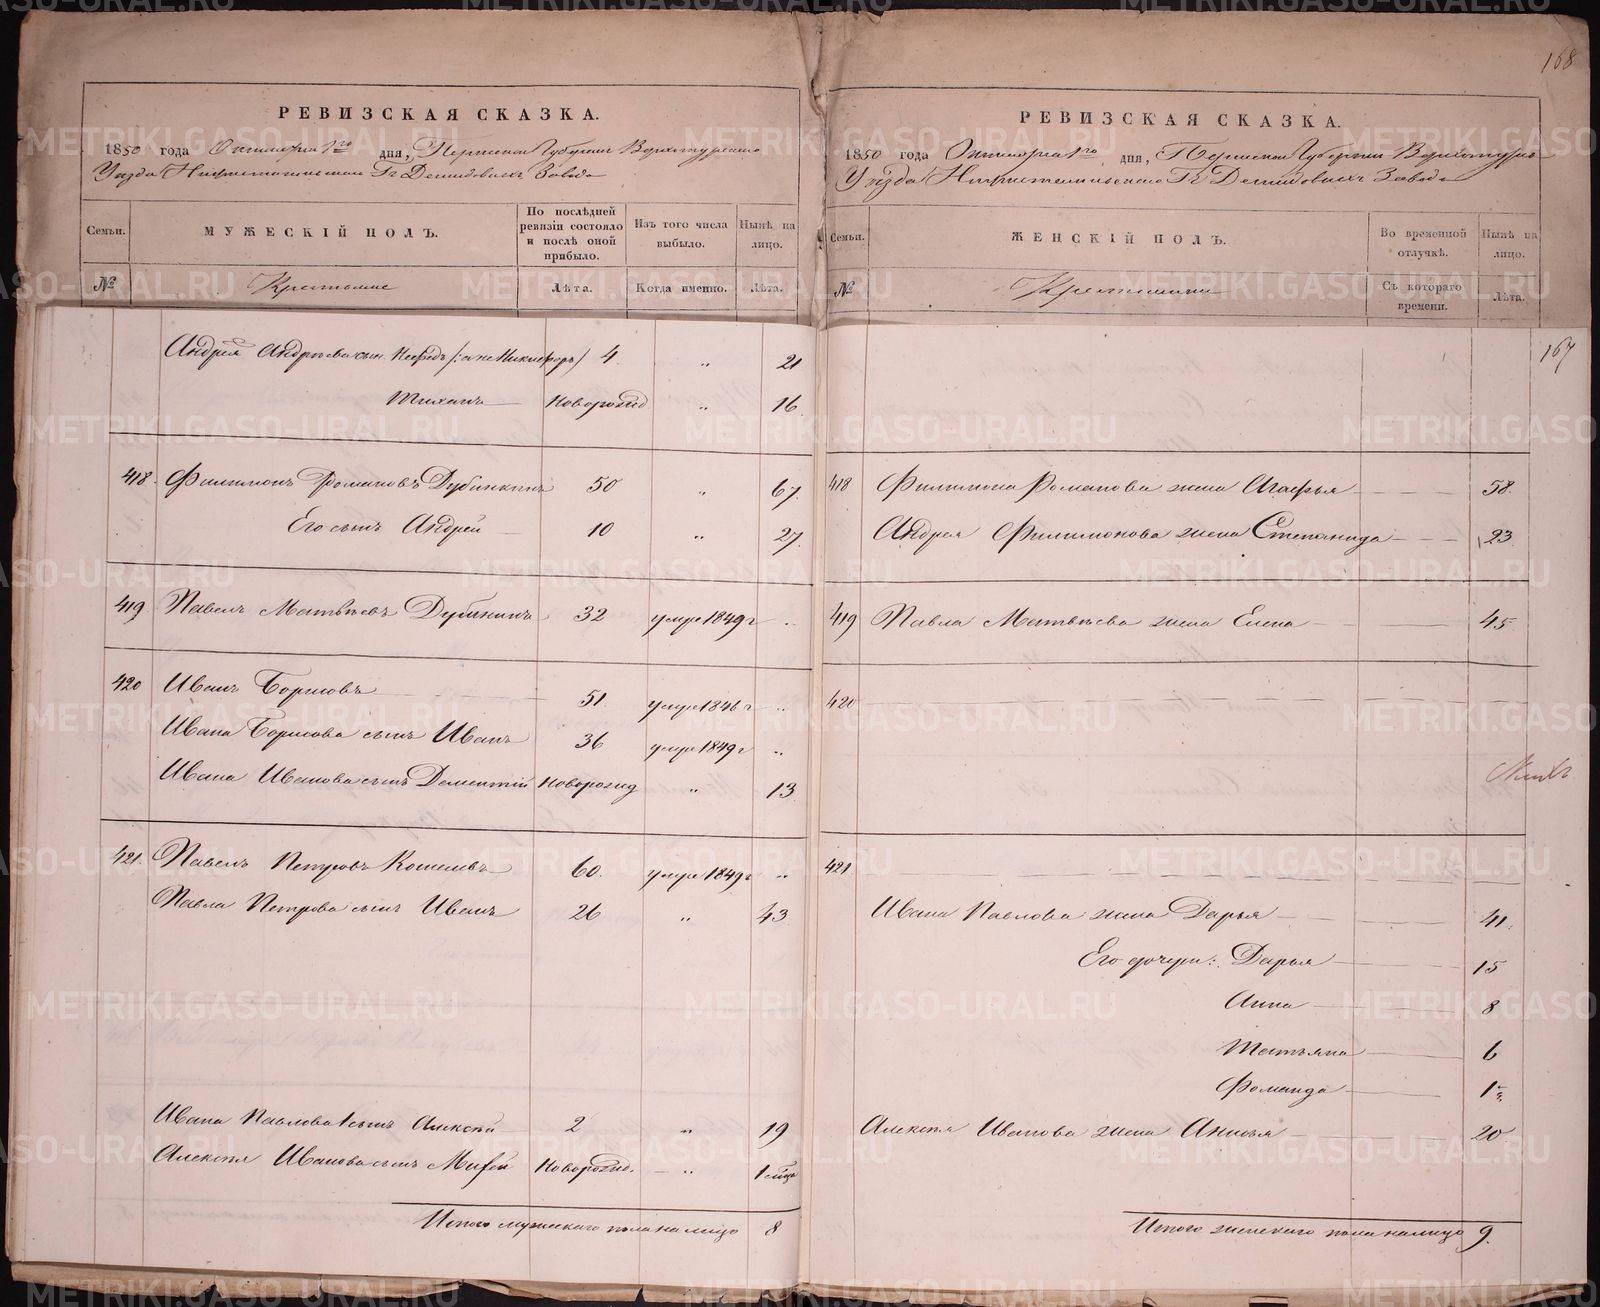 168
РЕВИЗСКАЯ СКАЗКА.
1850 года Октября 1го дня, Пермской Губернии Верхотурскаго
Уезда Нижнетагильскаго Гг Демидовыхъ Завода
Семьи. МУЖЕСКІЙ ПОЛЪ. По послѣдней ревизіи состояло и послѣ оной прибыло. Изъ того числа выбыло. Нынѣ на лицо.
№ Крестьяне Лѣта. Когда именно. Лѣта.
Андрея Андреева сын Нефедъ /: а не Никифоръ/ 4 " 21
Тихонъ Новорожд " 16
418. Филимонъ Романовъ Дубинкинъ 50 " 67.
Его сынъ Андрей 10 " 27.
419 Павелъ Матвѣевъ Дубинкинъ 32 умре 1849 г "
420 Иванъ Борисовъ 51. умре 1846 г "
Ивана Борисова сынъ Иванъ 36 умре 1849 г "
Ивана Иванова сынъ Дементій Новорожд " 13
421. Павелъ Петровъ Кошелевъ 60. умре 1849 г "
Павла Петрова сынъ Иванъ 26 " 43
Ивана Павлова 1 сынъ Алексѣй 2 " 19
Алексѣя Иванова сынъ Михей Новорожд. " 1 мѣся
Итого мужескаго пола на лицо 8
РЕВИЗСКАЯ СКАЗКА.
1850 года Октября 1го дня, Пермской Губернии Верхотурс
Уѣзда Нижнетагильскаго Гг Демидовыхъ Завода
Семьи. ЖЕНСКІЙ ПОЛЪ. Во временной отлучкѣ. Нынѣ на лицо.
№ Крестьянки Съ котораго времени. Лѣта.
167
418 Филимона Романова жена Агафья 58.
Андрея Филимонова жена Степанида 23
419 Павла Матвѣева жена Елена 45
420
421
Ивана Павлова жена Дарья 41.
Его дочери: Дарья 15
Анна 8
Татьяна 6
Фоманда 1
Алексѣя Иванова жена Анисья 20
Итого женскаго пола на лицо 9.
METRIKI.GASO-URAL.RU